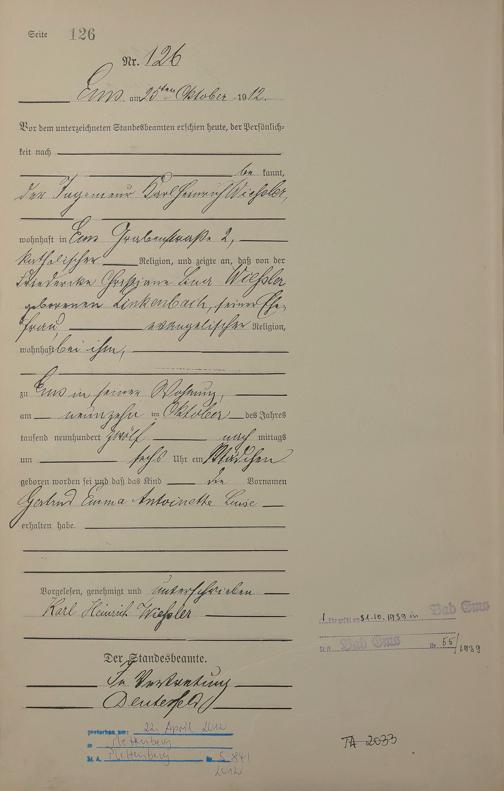 Seite 126
Nr. 126
Ems am 23ten Oktober 1912.
Vor dem unterzeichneten Standesbeamten erschien heute, der Persönlich-
keit nach
be kannt,
der Ingenieur Karl Heinrich
wohnhaft in Ems Grabenstraße 2,
katholischer Religion, und zeigte an, daß von der
Friedericke Christiane
geborenen Linkenbach, seiner Ehe-
frau, evangelischer Religion,
wohnhaft bei ihm,
zu Ems in seiner Wohnung,
am neunzehn im Oktober des Jahres
tausend neunhundert zwölf nach mittags
um sechs Uhr ein Mädchen
geboren worden sei und daß das Kind die Vornamen
Gertrud Emma Antoinette
erhalten habe.
Vorgelesen, genehmigt und unterschrieben
Karl Heinrich
Der Standesbeamte.
In Vertretung
31.10.1939 in Bad Ems
Bad Ems Nr. 55/1939
gestorben am: 22. April 2012
in
St. A. Nr.
2012
TA 2033